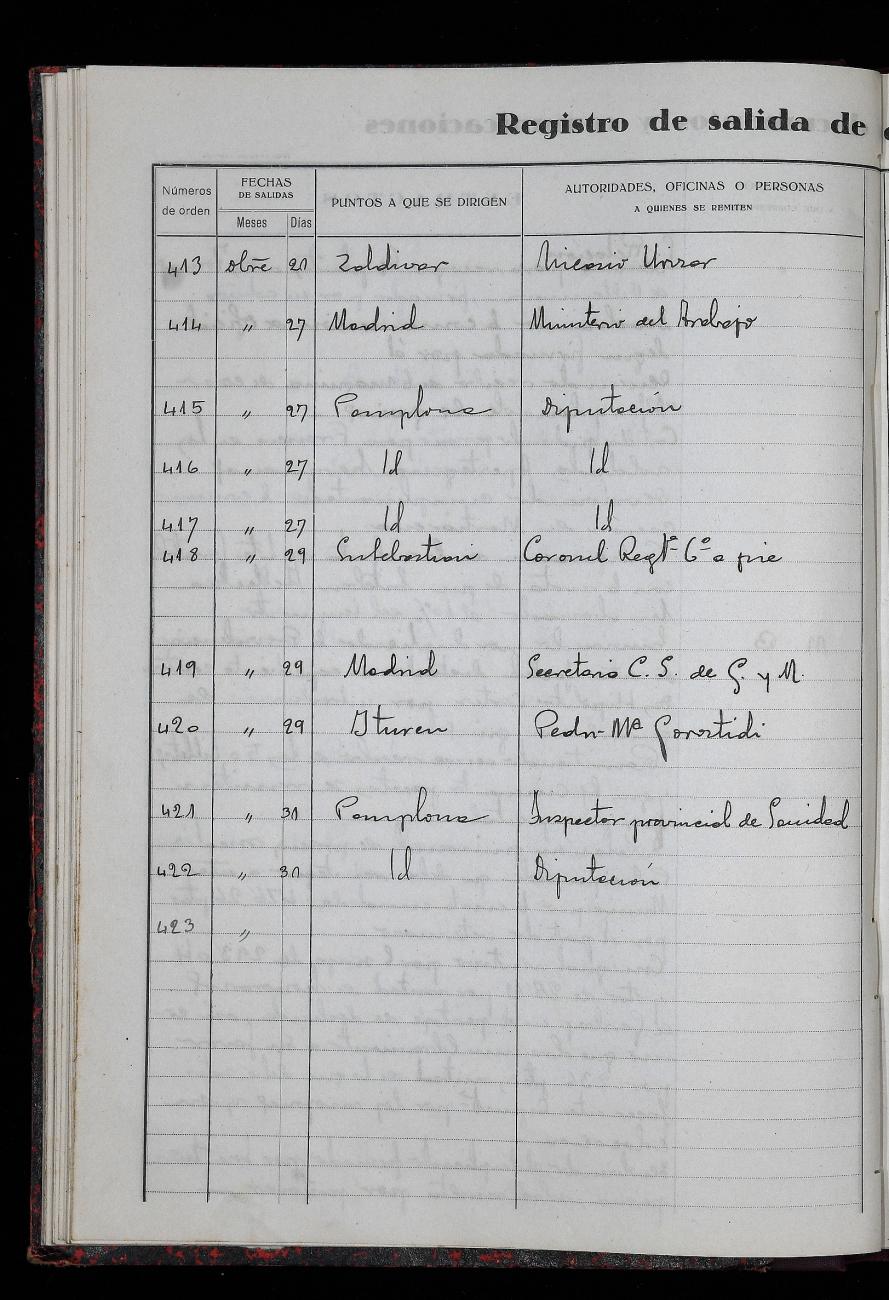 Registro de salida de
Números de orden
FECHAS DE SALIDAS
Meses Días
PUNTOS A QUE SE DIRIGEN
AUTORIDADES, OFICINAS O PERSONAS
A QUIENES SE REMITEN
413 obre 21 Zaldivar Nicasio Urizar
414 " 27 Madrid Ministerio del Trabajo
415 " 27 Pamplona Diputación
416 " 27 Id Id
417 " 27 Id Id
418 " 29 Coronel Regtº 6º a pie
419 " 29 Madrid Secretario C. S. de G. y M.
420 " 29 Ituren Pedro Mª Gorostidi
421 " 31 Pamplona Inspector provincial de Sanidad
422 " 31 Id Diputación
423 "